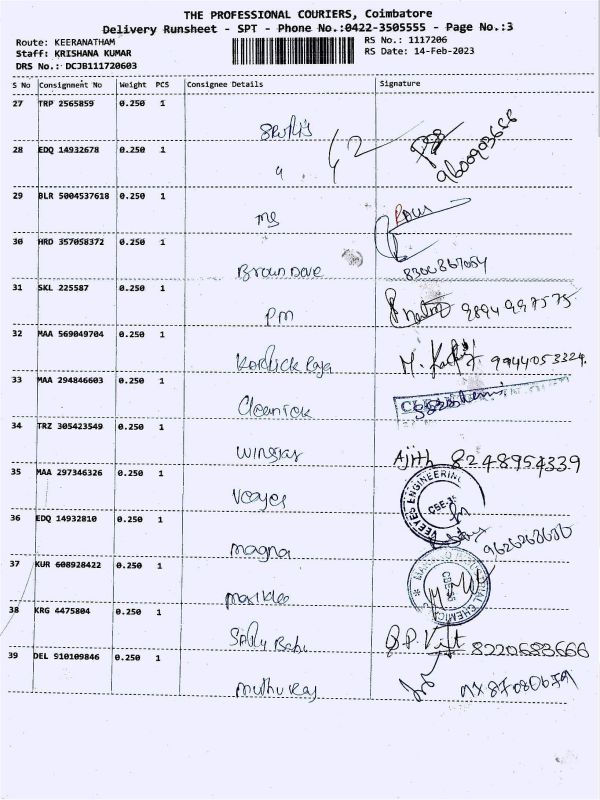 THE PROFESSIONAL COURIERS, Coimbatore
Delivery Runsheet - SPT - Phone No.:0422-3505555 - Page No.:3
Route: KEERANATHAM
Staff: KRISHANA KUMAR
DRS No.: DCJB111720603
RS No.: 1117206
RS Date: 14-Feb-2023
S No Consignment No Weight PCS Consignee Details Signature
27 TRP 2565859 0.250 1
28 EDQ 14932678 0.250 1
9600903666
29 BLR 5004537618 0.250 1
ms
30 HRD 357058372 0.250 1
Brown Dove
31 SKL 225587 0.250 1
PM 9894997575
32 MAA 569049704 0.250 1
Karthick Raja M. 9944053324
33 MAA 294846603 0.250 1
34 TRZ 305423549 0.250 1
Ajith 8248954339
35 MAA 297346326 0.250 1
Veeyes VEEYES ENGINEERING
36 EDQ 14932810 0.250 1
magna
37 KUR 608928422 0.250 1
38 KRG 4475804 0.250 1
Babu 8220683666
39 DEL 910109846 0.250 1
muthuraj